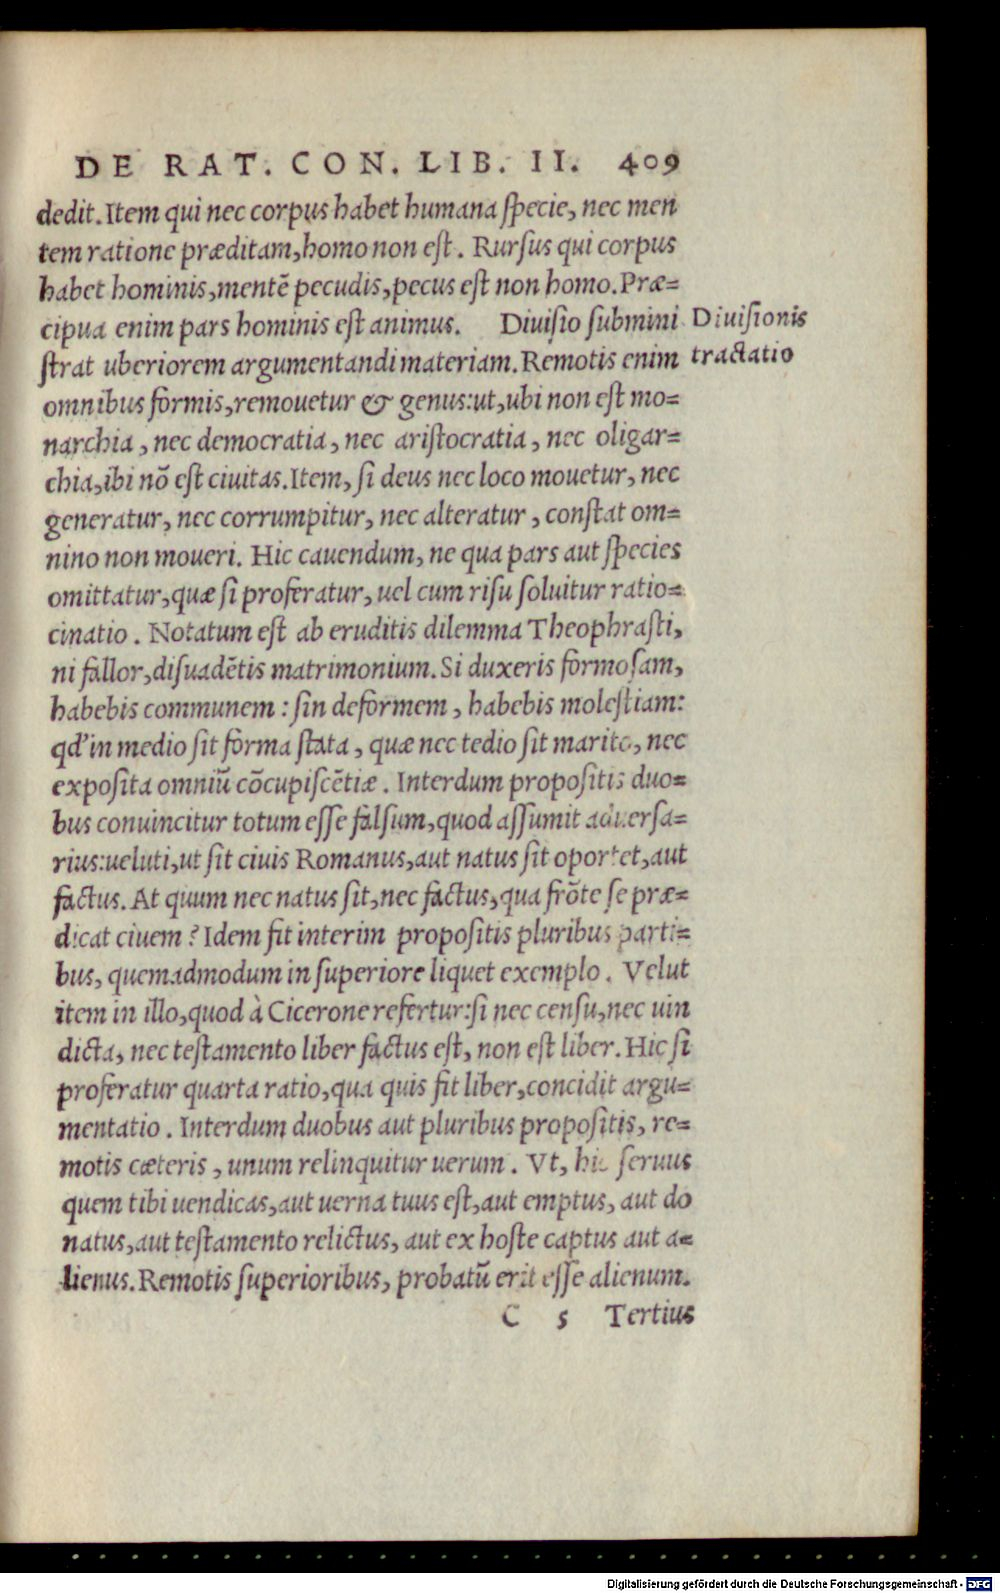 DE RAT. CON. LIB. II. 409
dedit. Item qui nec corpus habet humana specie, nec men
tem ratione præditam, homo non est. Rursus qui corpus
habet hominis, mentē pecudis, pecus est non homo. Præ=
cipua enim pars hominis est animus. Diuisio submini
Diuisionis
strat uberiorem argumentandi materiam. Remotis enim
tractatio
omnibus formis, remouetur & genus: ut, ubi non est mo=
narchia, nec democratia, nec aristocratia, nec oligar=
chia, ibi nō est ciuitas. Item, si deus nec loco mouetur, nec
generatur, nec corrumpitur, nec alteratur, constat om=
nino non moueri. Hic cauendum, ne qua pars aut species
omittatur, quæ si proferatur, uel cum risu soluitur ratio=
cinatio. Notatum est ab eruditis dilemma Theophrasti,
ni fallor, disuadētis matrimonium. Si duxeris formosam,
habebis communem: sin deformem, habebis molestiam:
qd' in medio sit forma stata, quæ nec tedio sit marito, nec
exposita omniū cōcupiscētiæ. Interdum propositis duo=
bus conuincitur totum esse falsum, quod assumit aduersa=
rius: ueluti, ut sit ciuis Romanus, aut natus sit oportet, aut
factus. At quum nec natus sit, nec factus, qua frōte se præ=
dicat ciuem? Idem fit interim propositis pluribus parti=
bus, quemadmodum in superiore liquet exemplo. Velut
item in illo, quod à Cicerone refertur: si nec censu, nec uin
dicta, nec testamento liber factus est, non est liber. Hic si
proferatur quarta ratio, qua quis fit liber, concidit argu=
mentatio. Interdum duobus aut pluribus propositis, re=
motis cæteris, unum relinquitur uerum. Vt, hic seruus
quem tibi uendicas, aut uerna tuus est, aut emptus, aut do
natus, aut testamento relictus, aut ex hoste captus aut a=
lienus. Remotis superioribus, probatū erit esse alienum.
C 5 Tertius
Digitalisierung gefördert durch die Deutsche Forschungsgemeinschaft - DFG